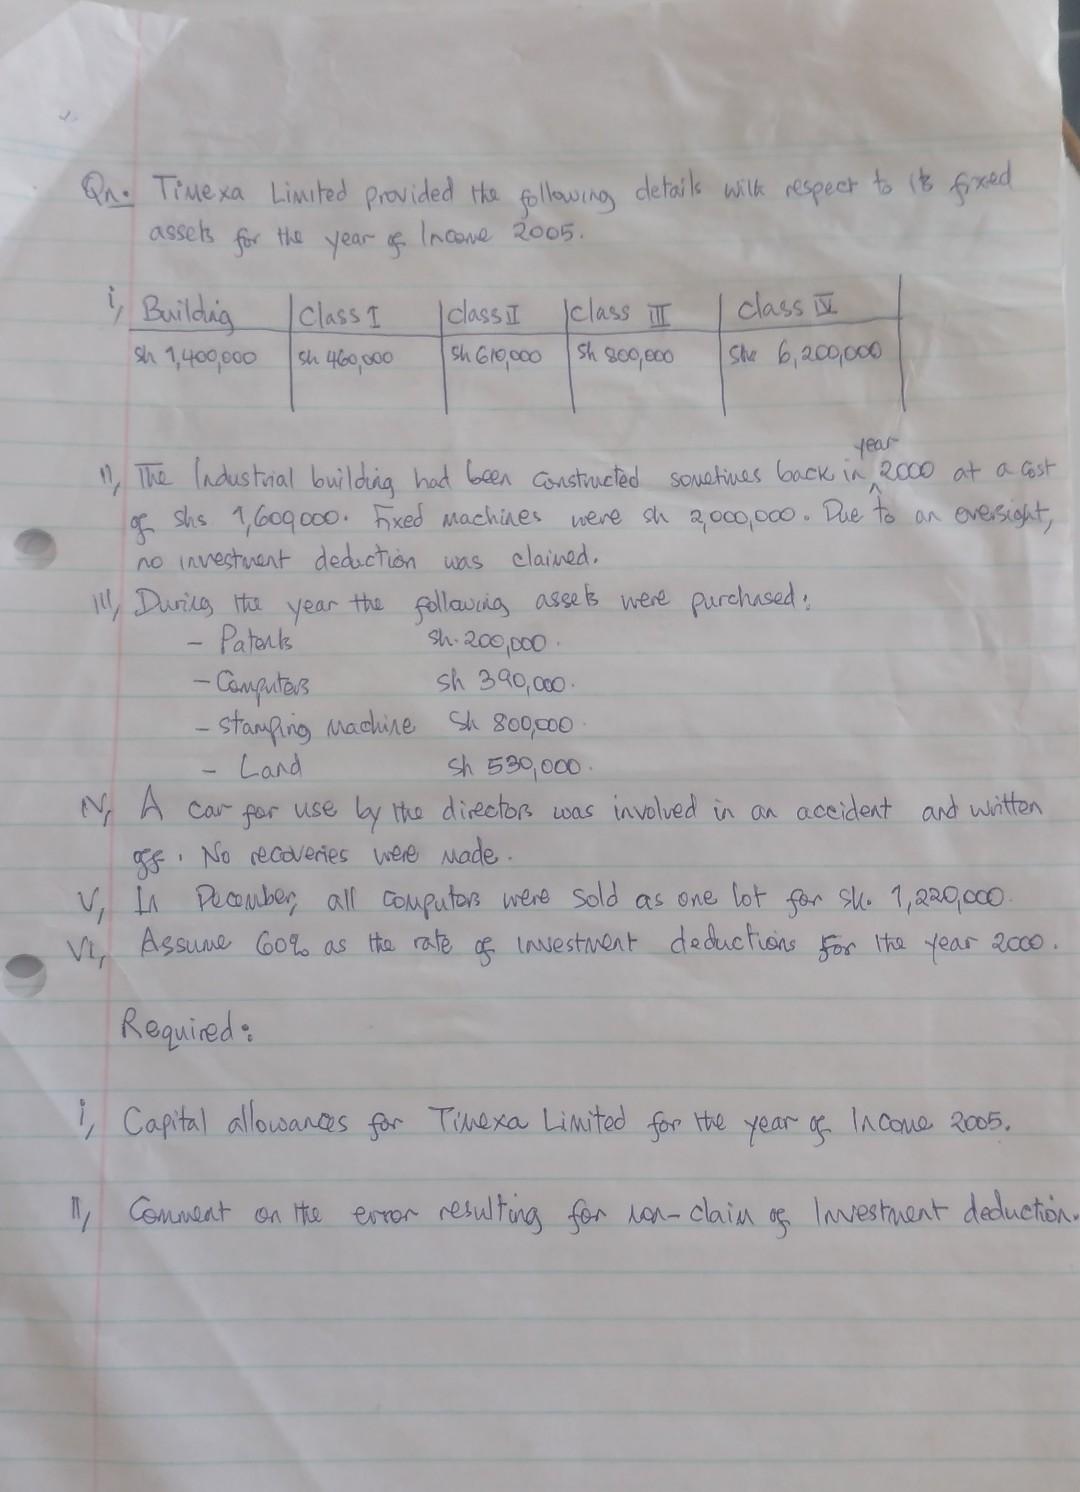 Qn. Timexa Limited provided the following details with respect to its fixed
assets for the year of Income 2005.
i, Building | Class I | class II | class III | class IV
Sh 1,400,000 | Sh 460,000 | Sh 610,000 | Sh 800,000 | Shs 6,200,000
year
ii, The Industrial building had been constructed sometimes back in ^ 2000 at a cost
of shs 1,600,000. Fixed machines were sh 2,000,000. Due to an oversight,
no investment deduction was claimed.
iii, During the year the following assets were purchased:
- Patents Sh. 200,000.
- Computers Sh 390,000.
- Stamping Machine Sh 800,000.
- Land Sh 530,000.
iv, A car for use by the directors was involved in an accident and written
off. No recoveries were made.
v, In December, all computers were sold as one lot for sh. 1,220,000.
vi, Assume 60% as the rate of investment deductions for the year 2000.
Required:
i, Capital allowances for Timexa Limited for the year of Income 2005.
ii, Comment on the error resulting for non-claim of Investment deduction.